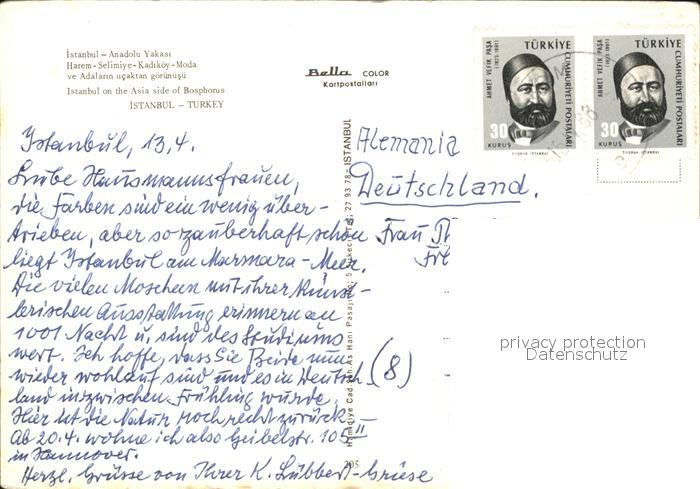 İstanbul – Anadolu Yakası
Harem – Selimiye – Kadıköy – Moda
ve Adaların uçaktan görünüşü
Istanbul on the Asia side of Bosphorus
İSTANBUL – TURKEY
Bella COLOR
Kartpostalları
AHMET VEFİK PAŞA
(1823-1891)
TÜRKİYE
CUMHURİYETİ POSTALARI
30
KURUŞ
AHMET VEFİK PAŞA
(1823-1891)
TÜRKİYE
CUMHURİYETİ POSTALARI
30
KURUŞ
Istanbul, 13.4.
Liebe Hausmannsfrauen,
die Farben sind ein wenig über-
trieben, aber so zauberhaft schön
liegt Istanbul am Marmara-Meer.
Die vielen Moscheen mit ihrer künst-
lerischen Ausstattung erinnern an
1001 Nacht u. sind des Studiums
wert. Ich hoffe, dass Sie Beide nun
wieder wohlauf sind und es in Deutsch
land inzwischen Frühling wurde.
Hier ist die Natur noch recht zurück
Ab 20.4. wohne ich also Geibelstr. 105 II
in Hannover.
Herzl. Grüsse von Ihrer K. Lübbert-Griese
Alemania
Deutschland.
Frau
(8)
27 93 78 - İSTANBUL
Hamidiye Caddesi As Hanı Pasajı
205
privacy protection
Datenschutz